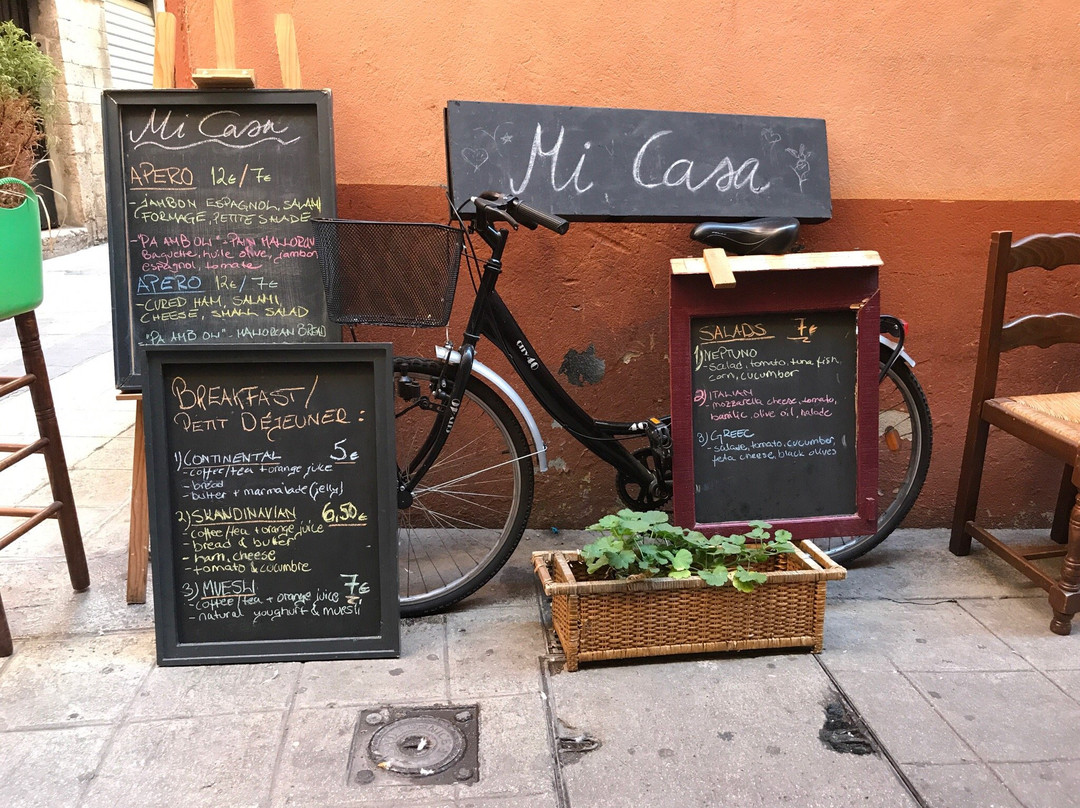 Mi Casa
APERO 12€/7€
- JAMBON ESPAGNOL, SALAMI
FORMAGE, PETITE SALADE
- "PA AMB OLI" - PAIN MALLORQUIN
Baguette, huile olive, jambon
espagnol, tomate
APERO 12€/7€
- CURED HAM, SALAMI,
CHEESE, SMALL SALAD
"PA AMB OLI" - MALLORCAN BREAD
BREAKFAST/
PETIT DÉJEUNER:
1) CONTINENTAL 5
- coffee/tea + orange juice
- bread
- butter + marmalade (jelly)
2) SKANDINAVIAN 6,50€
- coffee/tea + orange juice
- bread & butter
- ham, cheese
- tomato & cucumbre
3) MUESLI 7€
- coffee/tea + orange juice
- natural youghurt & muesli
Mi Casa
city 40
SALADS 7€
1) NEPTUNO
- Salad, tomato, tuna fish,
corn, cucumber
2) ITALIAN
- mozzarella cheese, tomato,
basilic, olive oil, salade
3) GREEC
- salade, tomato, cucumber,
feta cheese, black olives